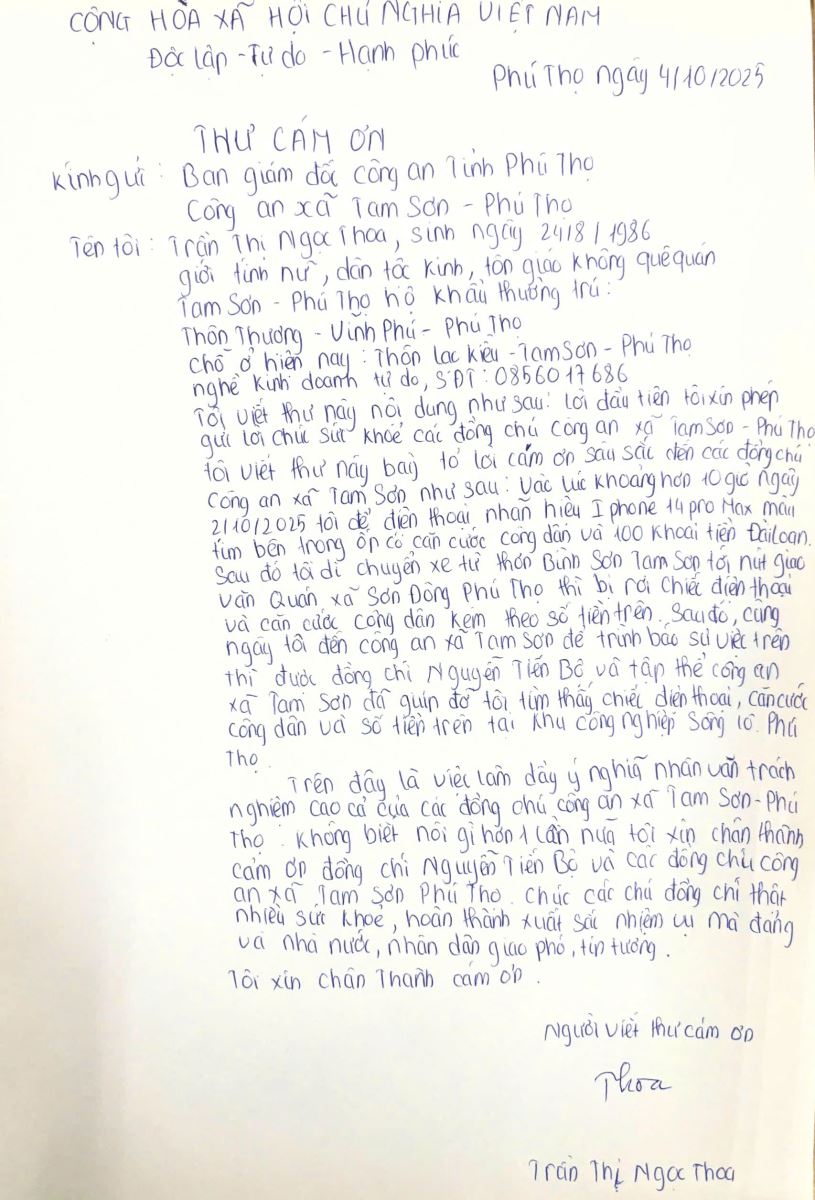 CỘNG HÒA XÃ HỘI CHỦ NGHĨA VIỆT NAM
Độc lập - Tự do - Hạnh phúc
Phú Thọ ngày 4/10/2025
THƯ CÁM ƠN
Kính gửi : Ban giám đốc công an Tỉnh Phú Thọ
Công an xã Tam Sơn - Phú Thọ
Tên tôi : Trần Thị Ngọc Thoa, sinh ngày 24/8/1986
giới tính nữ, dân tộc kinh, tôn giáo không quê quán
Tam Sơn - Phú Thọ hộ khẩu thường trú :
Thôn Thượng - Vĩnh Phú - Phú Thọ
chỗ ở hiện nay : Thôn lạc kiều - Tam Sơn - Phú Thọ
nghề kinh doanh tự do, SĐT : 0856017686
Tôi viết thư này nội dung như sau : lời đầu tiên tôi xin phép
gửi lời chúc sức khoẻ các đồng chú công an xã Tam Sơn - Phú Thọ
tôi viết thư này baỳ tỏ lời cảm ơn sâu sắc đến các đồng chú
Công an xã Tam Sơn như sau : Vào lúc khoảng hơn 10 giờ ngày
2/10/2025 tôi để điện thoại nhãn hiệu Iphone 14 pro Max màu
tím bên trong ốp có căn cước công dân và 100 khoai tiền Đài Loan.
Sau đó tôi di chuyển xe từ thôn Bình Sơn Tam Sơn tới nút giao
Văn Quán xã Sơn Đông Phú Thọ thì bị rơi chiếc điện thoại
và căn cước công dân kèm theo số tiền trên. Sau đó, cùng
ngày tôi đến công an xã Tam Sơn để trình báo sự việc trên
thì được đồng chí Nguyễn Tiến Bộ và tập thể công an
xã Tam Sơn đã giúp đỡ tôi tìm thấy chiếc điện thoại, căn cước
công dân và số tiền trên tại khu công nghiệp Sông lô. Phú
Thọ.
Trên đây là việc làm đầy ý nghĩa nhân văn trách
nghiệm cao cả của các đồng chú công an xã Tam Sơn - Phú
Thọ . Không biết nói gì hơn 1 lần nữa tôi xin chân thành
cảm ơn đồng chí Nguyễn Tiến Bộ và các đồng chú công
an xã Tam Sơn Phú Thọ . Chúc các chú đồng chí thật
nhiều sức khoẻ, hoàn thành xuất sắc nhiệm vụ mà đảng
và nhà nước, nhân dân giao phó, tin tưởng.
Tôi xin chân Thành cảm ơn .
Người viết thư cảm ơn
Thoa
Trần Thị Ngọc Thoa